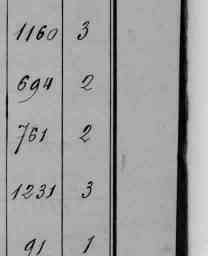 1160 3
694 2
761 2
1231 3
91 1